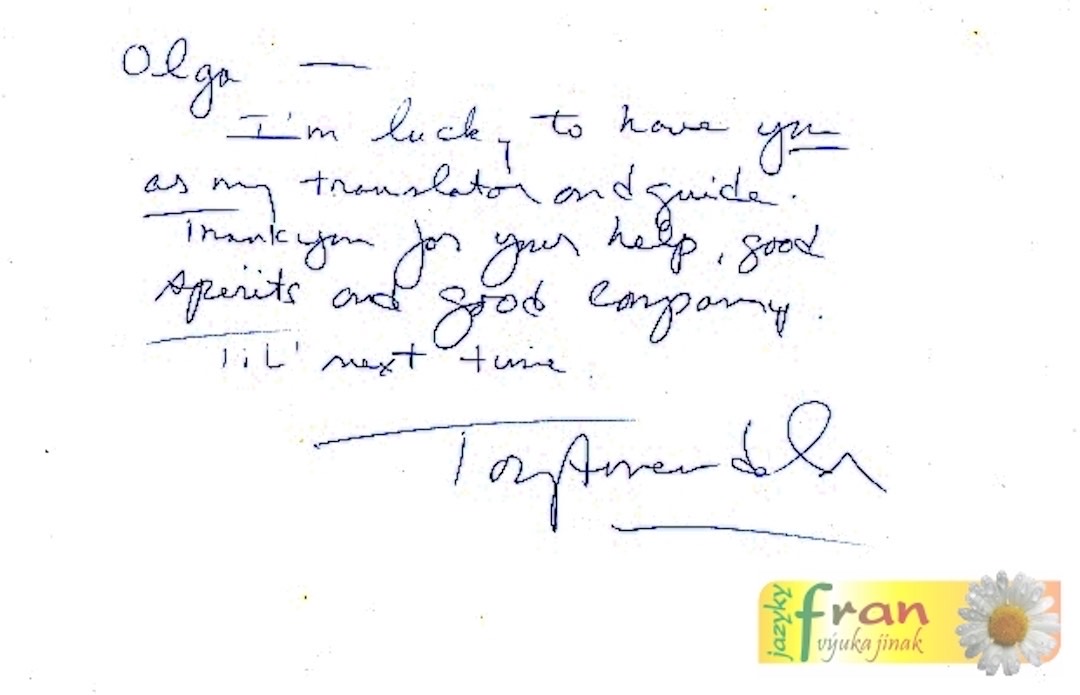 Olga —
I'm lucky to have you
as my translator and guide.
Thank you for your help, good
spirits and good company.
Til' next time.
Tony Amendola
jazyky
fran
výuka jinak